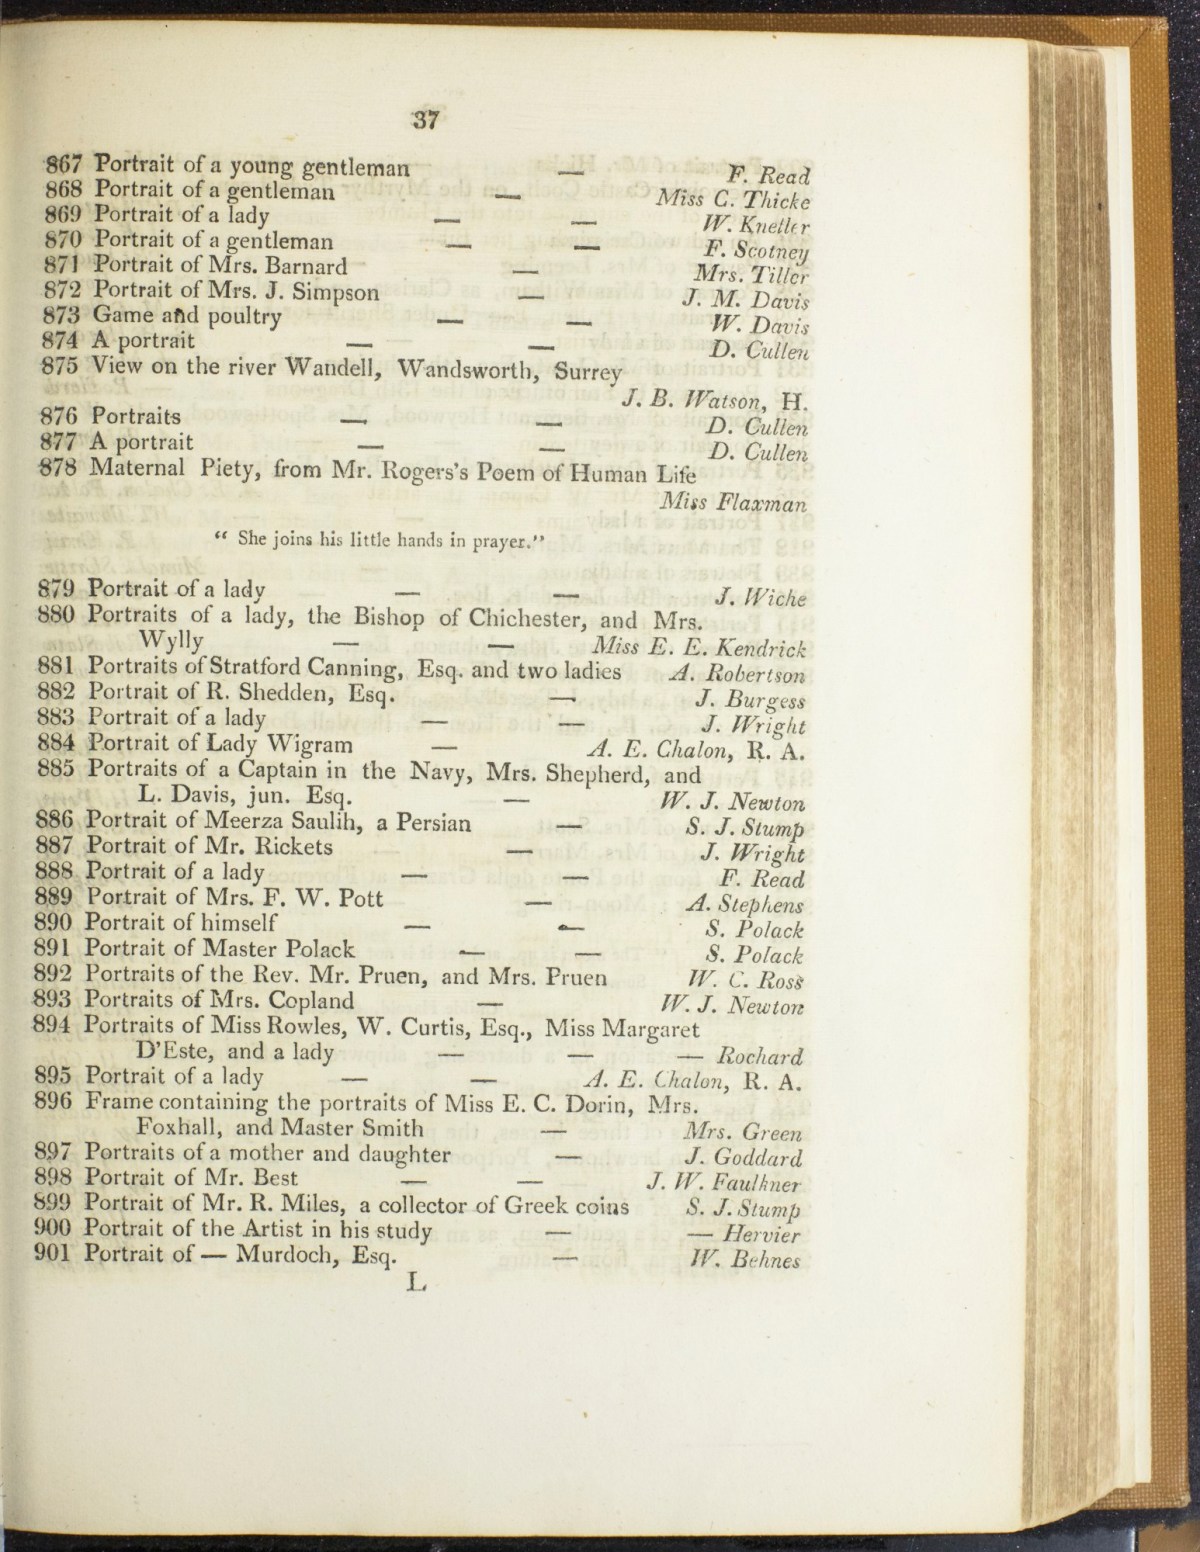 37
867 Portrait of a young gentleman — F. Read
868 Portrait of a gentleman — Miss C. Thicke
869 Portrait of a lady — — W. Kneller
870 Portrait of a gentleman — — F. Scotney
871 Portrait of Mrs. Barnard — Mrs. Tiller
872 Portrait of Mrs. J. Simpson — J. M. Davis
873 Game and poultry — — W. Davis
874 A portrait — — D. Cullen
875 View on the river Wandell, Wandsworth, Surrey
J. B. Watson, H.
876 Portraits — — D. Cullen
877 A portrait — — D. Cullen
878 Maternal Piety, from Mr. Rogers's Poem of Human Life
Miss Flaxman
“ She joins his little hands in prayer.”
879 Portrait of a lady — — J. Wiche
880 Portraits of a lady, the Bishop of Chichester, and Mrs.
Wylly — — Miss E. E. Kendrick
881 Portraits of Stratford Canning, Esq. and two ladies A. Robertson
882 Portrait of R. Shedden, Esq. — J. Burgess
883 Portrait of a lady — — J. Wright
884 Portrait of Lady Wigram — A. E. Chalon, R. A.
885 Portraits of a Captain in the Navy, Mrs. Shepherd, and
L. Davis, jun. Esq. — W. J. Newton
886 Portrait of Meerza Saulih, a Persian — S. J. Stump
887 Portrait of Mr. Rickets — J. Wright
888 Portrait of a lady — — F. Read
889 Portrait of Mrs. F. W. Pott — A. Stephens
890 Portrait of himself — — S. Polack
891 Portrait of Master Polack — — S. Polack
892 Portraits of the Rev. Mr. Pruen, and Mrs. Pruen W. C. Ross
893 Portraits of Mrs. Copland — W. J. Newton
894 Portraits of Miss Rowles, W. Curtis, Esq., Miss Margaret
D'Este, and a lady — — — Rochard
895 Portrait of a lady — — A. E. Chalon, R. A.
896 Frame containing the portraits of Miss E. C. Dorin, Mrs.
Foxhall, and Master Smith — Mrs. Green
897 Portraits of a mother and daughter — J. Goddard
898 Portrait of Mr. Best — — J. W. Faulkner
899 Portrait of Mr. R. Miles, a collector of Greek coins S. J. Stump
900 Portrait of the Artist in his study — — Hervier
901 Portrait of — Murdoch, Esq. — W. Behnes
L